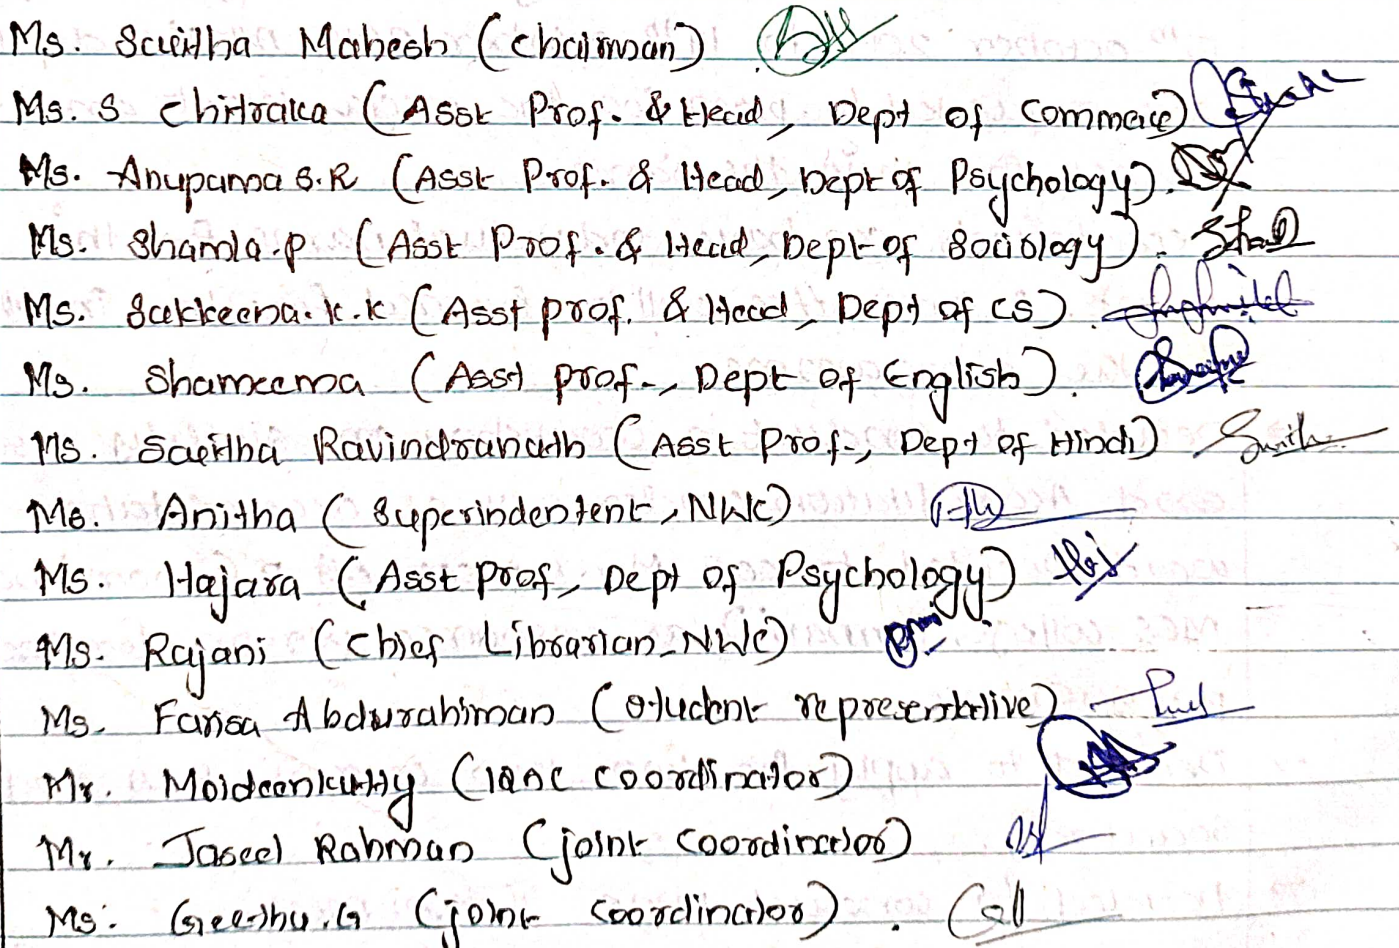 Ms. Savitha Mahesh (Chairman)
Ms. S Chitraka (Asst Prof. & Head, Dept of Commerce)
Ms. Anupama S.R (Asst Prof. & Head, Dept of Psychology).
Ms. Shamla.P (Asst Prof. & Head, Dept of Sociology).
Ms. Sakkeena.K.K (Asst Prof. & Head, Dept of CS).
Ms. Shameema (Asst Prof., Dept of English).
Ms. Savitha Ravindranath (Asst Prof., Dept of Hindi)
Ms. Anitha (Superindentent, NWC)
Ms. Hajara (Asst Prof, Dept of Psychology)
Ms. Rajani (Chief Librarian, NWC)
Ms. Farisa Abdurahiman (Student representative)
Mr. Moideenkutty (IQAC Coordinator)
Mr. Jaseel Rahman (joint Coordinator)
Ms. Greeshu.G (joint Coordinator).